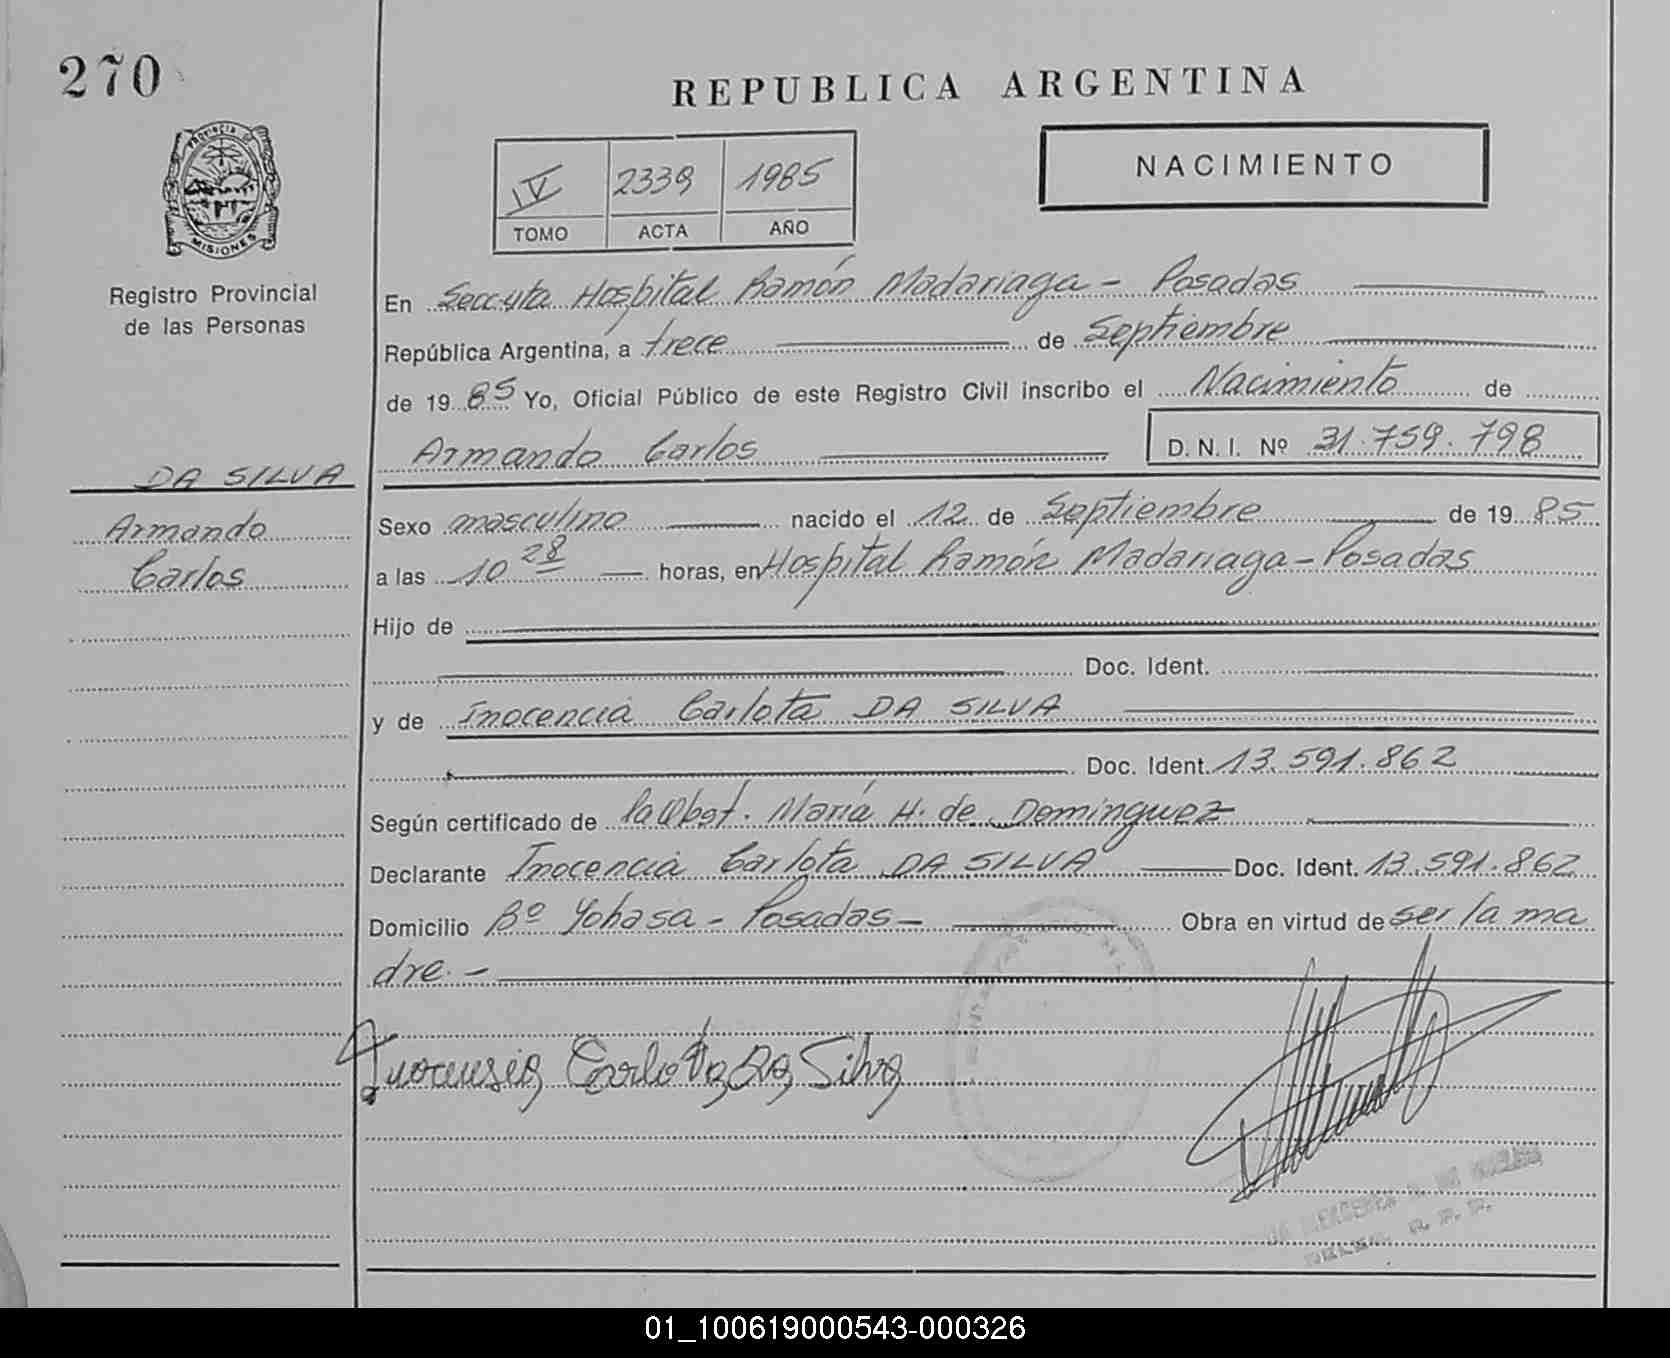 270
REPUBLICA ARGENTINA
PROVINCIA DE
MISIONES
Registro Provincial
de las Personas
IV 2339 1985
TOMO ACTA AÑO
NACIMIENTO
En Seccyta Hospital Ramón Madariaga - Posadas
República Argentina, a trece de Septiembre
de 1985 Yo, Oficial Público de este Registro Civil inscribo el Nacimiento de
Armando Carlos D. N. I. Nº 31.759.798
DA SILVA
Armando
Carlos
Sexo masculino nacido el 12 de Septiembre de 1985
a las 10 28 horas, en Hospital Ramón Madariaga - Posadas
Hijo de
Doc. Ident.
y de Inocencia Carlota DA SILVA
Doc. Ident. 13.591.862
Según certificado de la Obst. María H. de Dominguez
Declarante Inocencia Carlota DA SILVA Doc. Ident. 13.591.862
Domicilio Bº Yohasa - Posadas - Obra en virtud de ser la ma
dre. -
Inocensia Carlota Da Silva
01_100619000543-000326